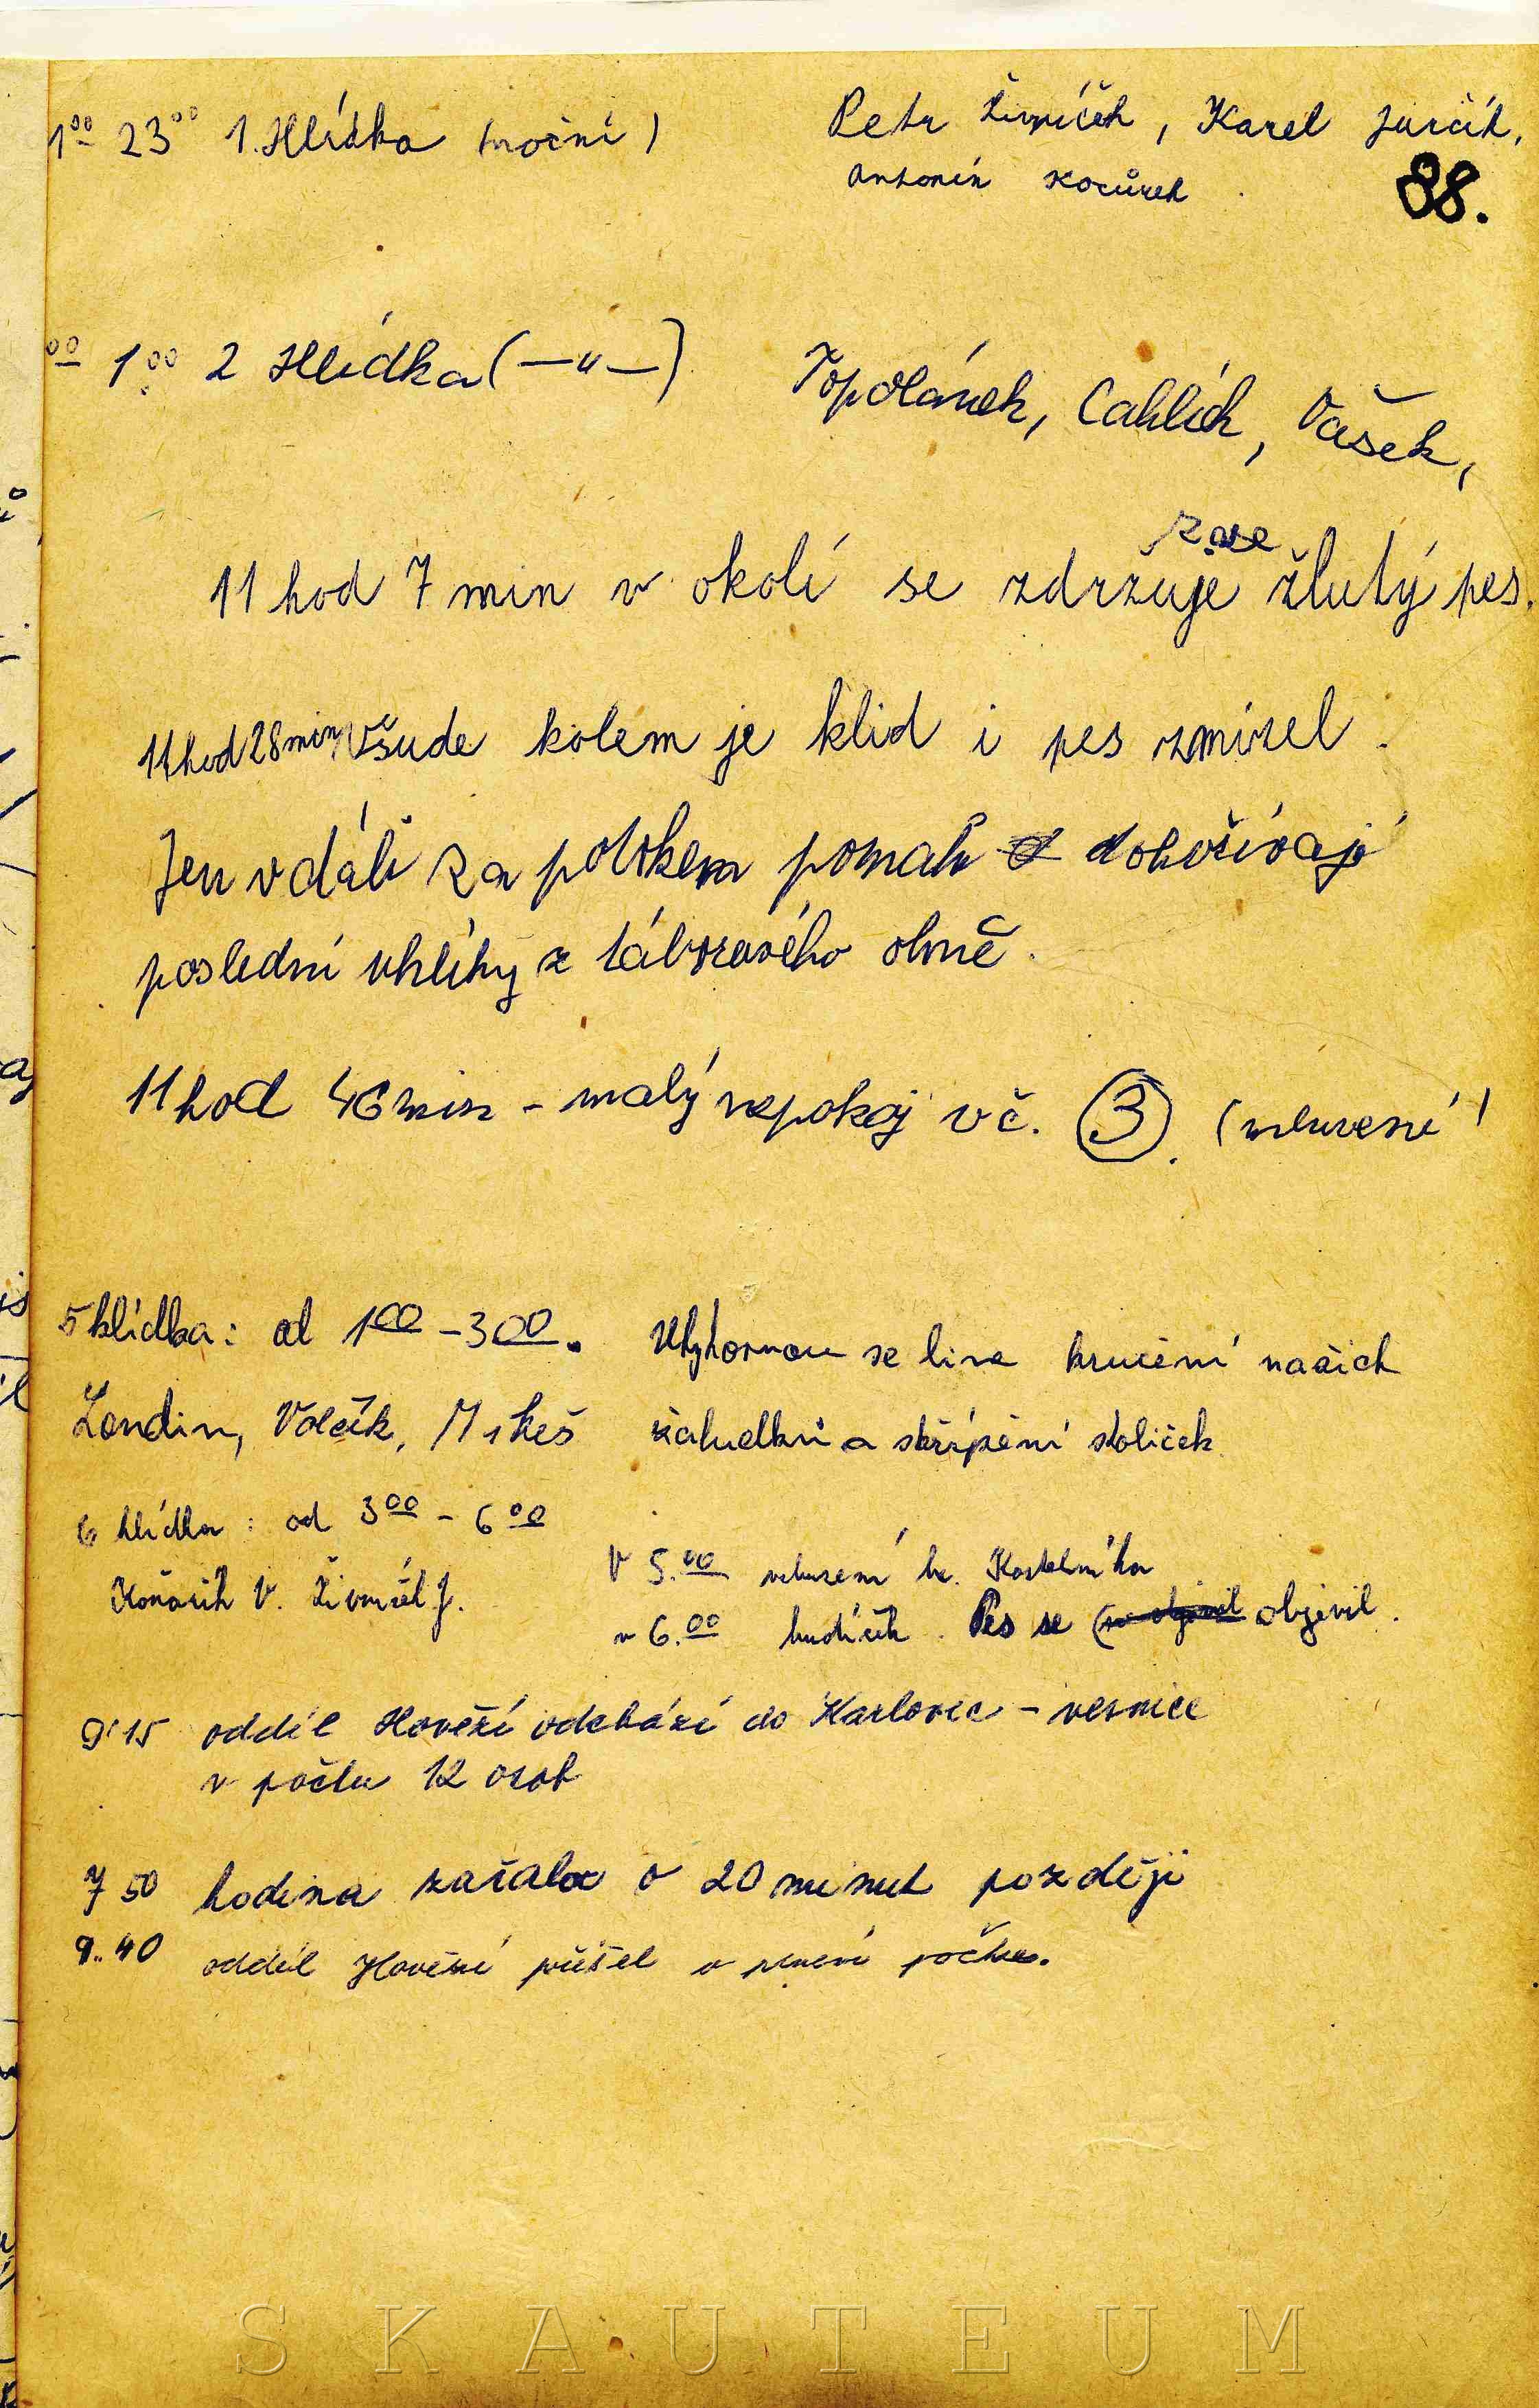 1 00 23 00 1. Hlídka (noční) Petr Živníček, Karel Jurčík,
Antonín Kocůrek
88.
00 1 00 2 Hlídka (—„—) Topolánek, Cahlík, Vašek,
zase
11 hod 7 min v okolí se zdržuje žlutý pes.
11 hod 28 min Všude kolem je klid i pes zmizel.
Jen v dáli za potokem pomalu dohořívají
poslední uhlíky z táborového ohně.
11 hod 46 min - malý nepokoj v č. 3. (mluvení)
5 hlídka: od 1 00 - 3 00. se line kručení našich
Londin, Volčík, Mikeš žaludků a skřípění stoliček
6 hlídka: od 3 00 - 6 00
V 5.00 mluvení br. Kostelníka
V. J.
v 6.00 budíček. Pes se objevil.
9 15 oddíl Hovězí odchází do Karlovic - vesnice
v počtu 12 osob
7 50 hodina začala o 20 minut později
9.40 oddíl Hovězí přišel v počtu.
SKAUTEUM